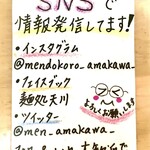 SNSで
情報発信してます!
・インスタグラム
@mendokoro_amakawa_
・フェイスブック
麺処天川
・ツイッター
@men_amakawa_
よろしくお願いします